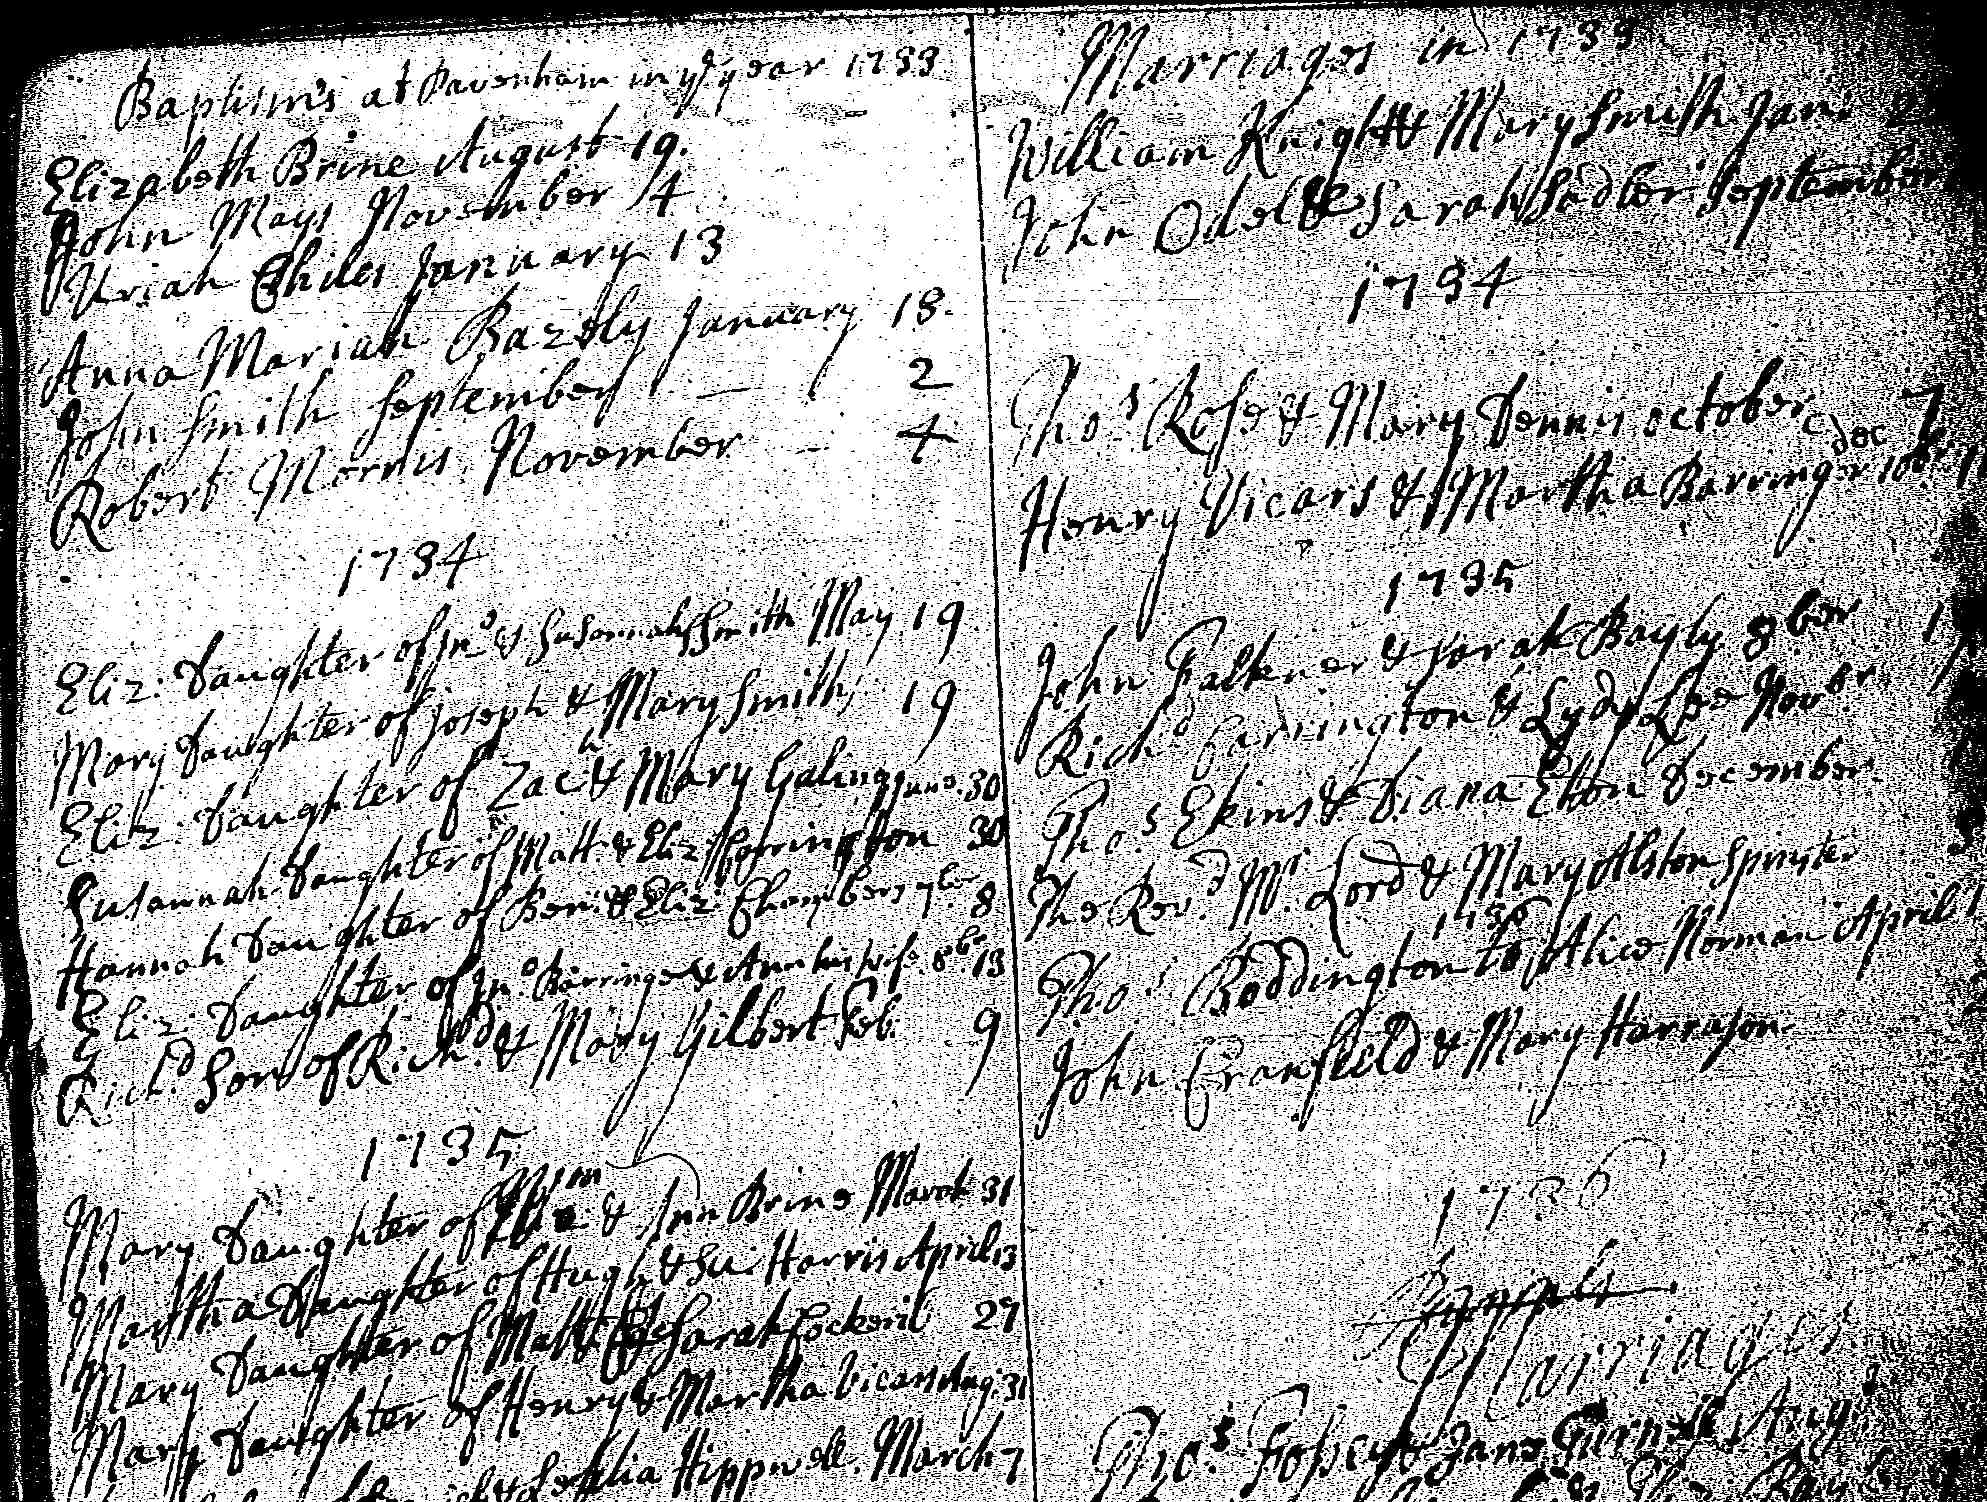 Baptism's at Pavenham in ye year 1733
Elizabeth Brine August 19.
John Mays November 14
Uriah Childs January 13
Anna Mariah Bazely January 13.
John Smith September — 2
Robert Morris November — 4
1734
Eliz: Daughter of Jno & Susannah Smith May 19
Mary Daughter of Joseph & Mary Smith 19
Eliz: Daughter of Zach & Mary Galing June 30
Susannah Daughter of Matt: & Eliz: Horrington 30
Hannah Daughter of Ben: & Eliz: Chambers 7ber 8
Eliz: Daughter of Jno. Barringer & Ann his wife. 8br 13
Richd Son of Richd. & Mary Gilbert Feb. 9
1735
Mary Daughter of & Ann Brine March 31
Martha Daughter of Hugh & Su: Harris April 13
Mary Daughter of Matt: & Sarah Cockeril 27
Mary Daughter of Henry & Martha Vicars Aug. 31
Hippwell. March 7
Marriages in 1733
William Knight & Mary Smith Jan:
John Odell & Sarah Sadler September
1734
Thos Rose & Mary Dennis october 7
Henry Vicars & Martha Barringer 10br dec
1735
John Falkner & Sarah Bayly 8ber
Richd Carrington & Lydy Lee Novbr
Thos Ekins & Diana Elton December
The Revd Mr. Lord & Mary Alston Spinster
1736
Thos Boddington to Alice Norman April
John Cranfield & Mary Harrason
1736
Marriages
Thos Fossey & Jane Gurnell Aug.